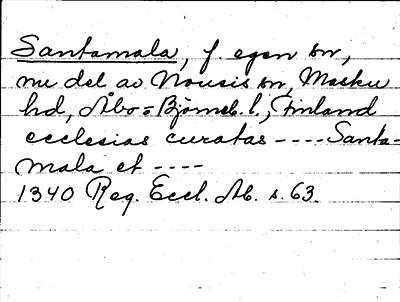 Santamala, f. egen sn,
nu del av Nousis sn, Masku
hd, Åbo=Björneb. l., Finland
ecclesias curatas ---- Santa-
mala et ----
1340 Reg. Eccl. Ab. s. 63.